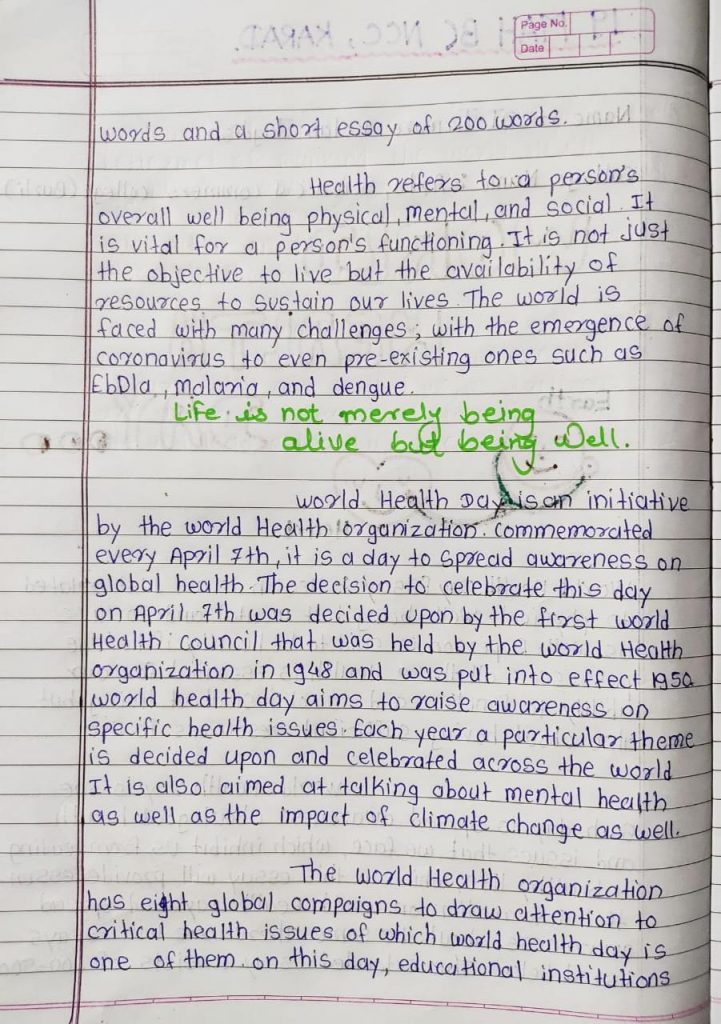 Page No.
Date
words and a short essay of 200 words.
Health refers to a person's
overall well being physical, mental, and social. It
is vital for a person's functioning. It is not just
the objective to live but the availability of
resources to sustain our lives. The world is
faced with many challenges, with the emergence of
coronavirus to even pre-existing ones such as
Ebola, malaria, and dengue.
Life is not merely being
alive but being well.
world Health Day is an initiative
by the world Health organization. commemorated
every April 7th, it is a day to spread awareness on
global health. The decision to celebrate this day
on April 7th was decided upon by the first world
Health council that was held by the world Health
organization in 1948 and was put into effect 1950
world health day aims to raise awareness on
specific health issues. Each year a particular theme
is decided upon and celebrated across the world
It is also aimed at talking about mental health
as well as the impact of climate change as well.
The world Health organization
has eight global compaigns to draw attention to
critical health issues of which world health day is
one of them. on this day, educational institutions